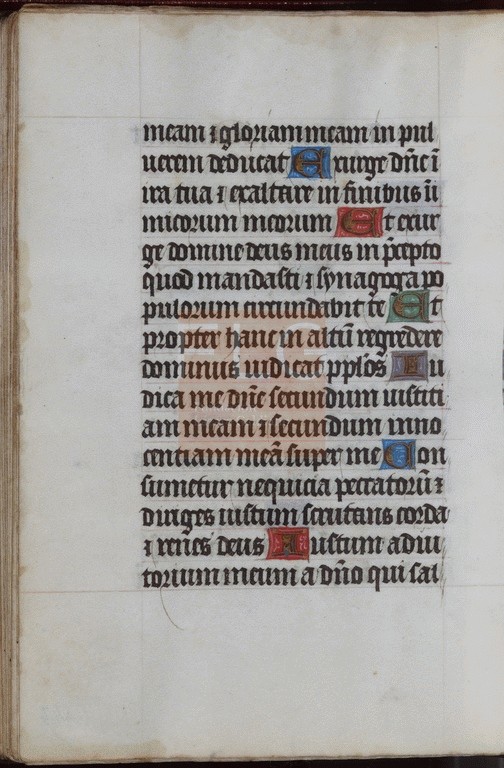 meam ⁊ gloriam meam in pul
uerem deducat Exurge dn̄e ī
ira tua ⁊ exaltare in finibus ū
micorum meorum Et exur
ge domine deus meus in p̄cepto
quod mandasti ⁊ synagoga po
pulorum circundabit te Et
propter hanc in altū regredere
dominus iudicat pp̄los Iu
dica me dn̄e secundum iustiti
am meam ⁊ secundum inno
centiam meā super me Con
sumetur nequicia peccatorū ⁊
diriges iustum scrutans corda
⁊ renes deus Iustum adiu
torium meum a dn̄o qui sal